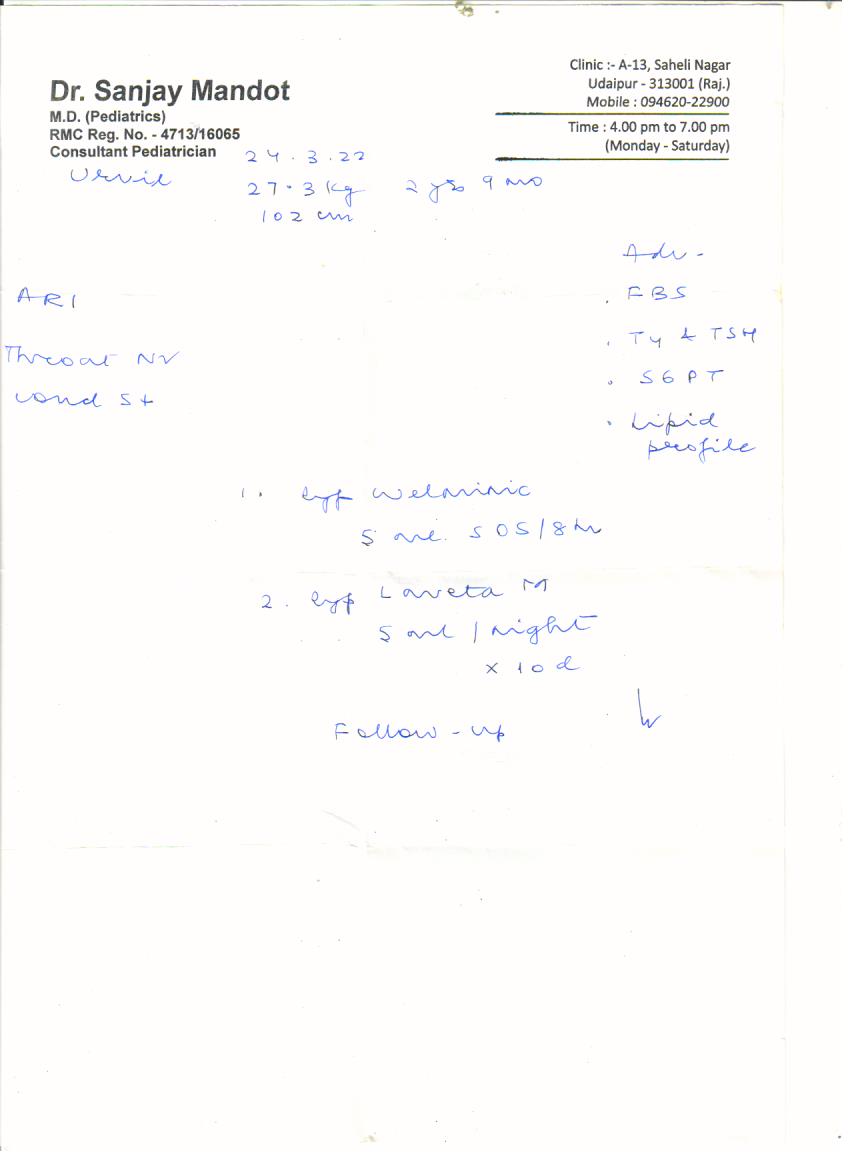 Dr. Sanjay Mandot
M.D. (Pediatrics)
RMC Reg. No. - 4713/16065
Consultant Pediatrician
Clinic :- A-13, Saheli Nagar
Udaipur - 313001 (Raj.)
Mobile : 094620-22900
Time : 4.00 pm to 7.00 pm
(Monday - Saturday)
24.3.22
Urvil
27.3 kg 2 yrs 9 mo
102 cm
Adv -
. FBS
. T4 & TSH
. SGPT
. Lipid
profile
ARI
Throat NV
cond S+
1. syp Welminic
5 ml. SOS/8 hr
2. syp Laveta M
5 ml / night
x 10 d
Follow-up